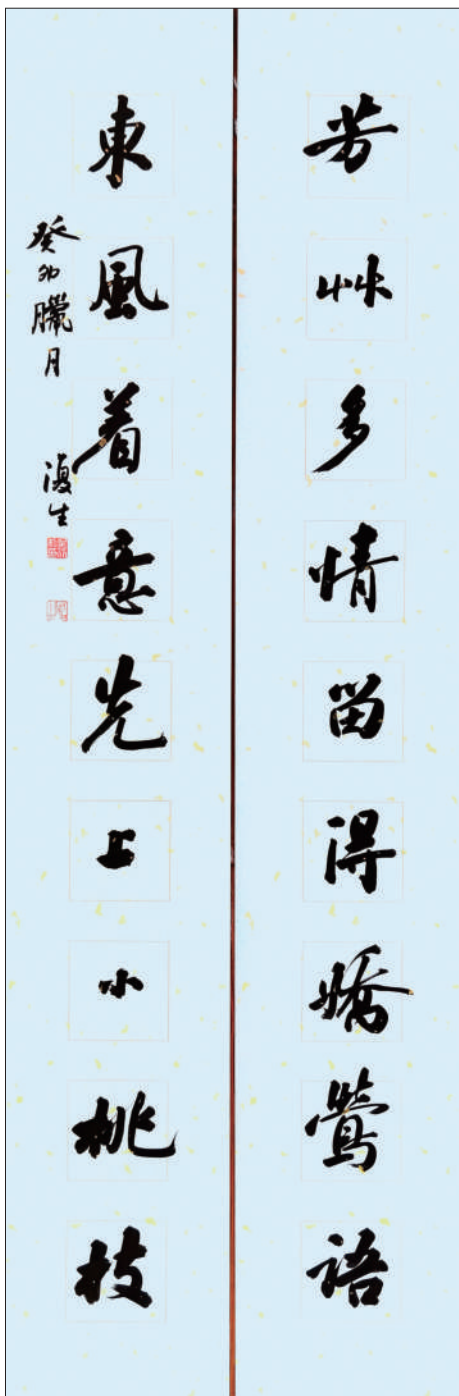 芳艸多情留得嬌鶯語
東風着意先上小桃枝
癸卯臘月
復生